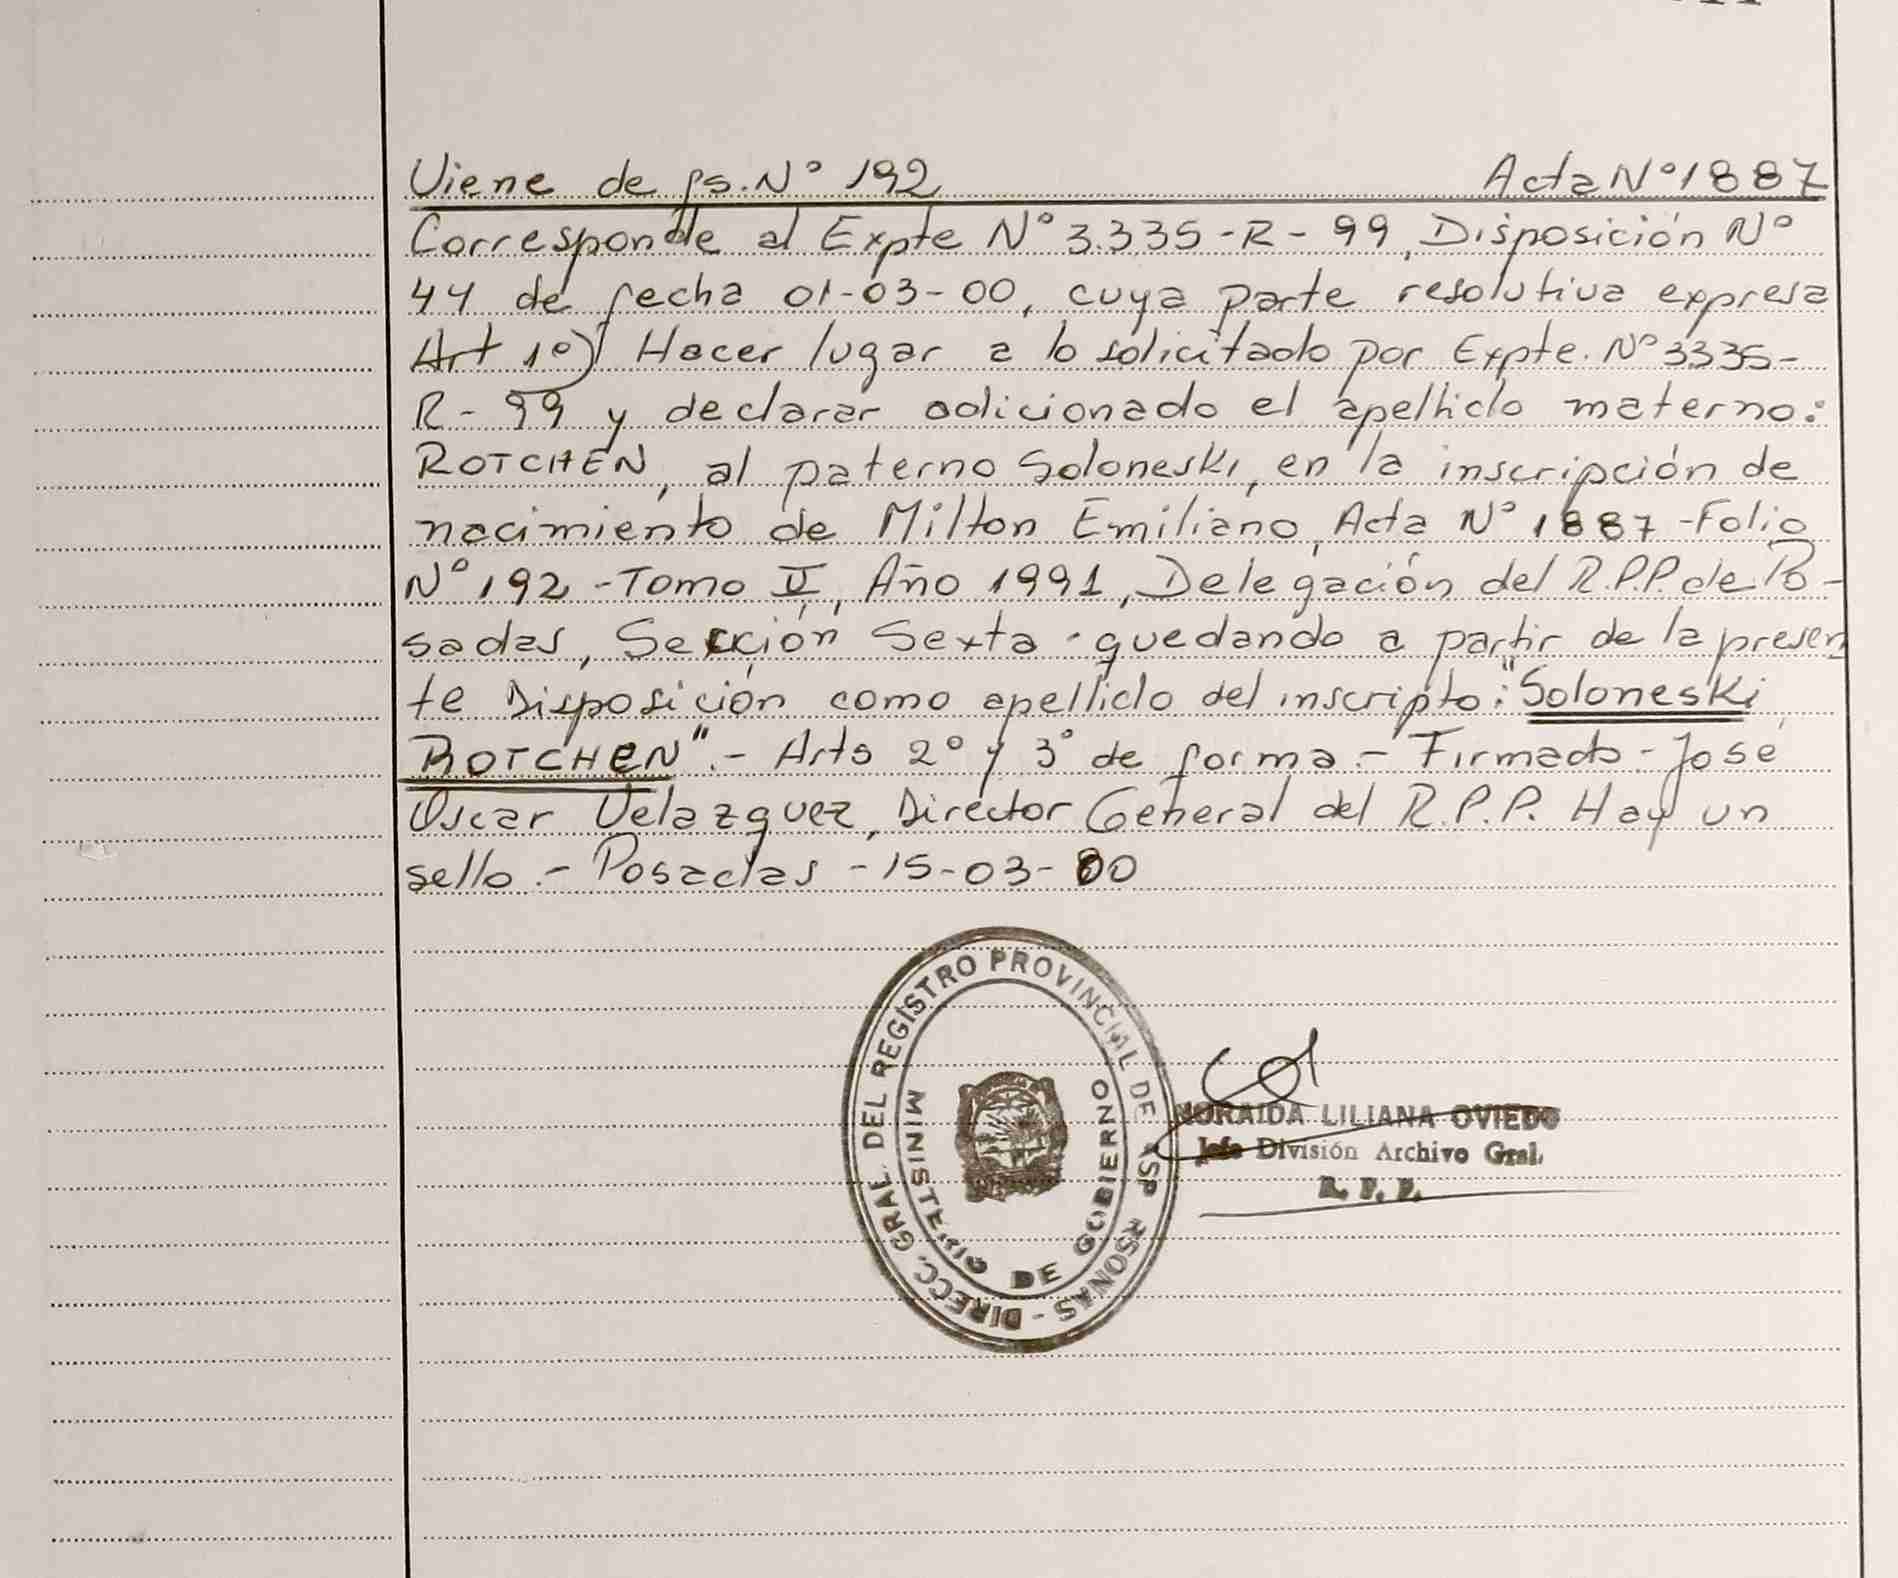 Viene de ps. N° 192 Acta N° 1887
Corresponde al Expte N° 3.335-R-99, Disposición N°
44 de fecha 01-03-00, cuya parte resolutiva expresa
Art 1º) Hacer lugar a lo solicitado por Expte. N° 3335-
R-99 y declarar adicionado el apellido materno:
ROTCHEN, al paterno Soloneski, en la inscripción de
nacimiento de Milton Emiliano, Acta N° 1887 - Folio
N° 192 - Tomo V, Año 1991, Delegación del R.P.P. de Po-
sadas, Sección Sexta - quedando a partir de la presen
te Disposición como apellido del inscripto: "Soloneski
ROTCHEN".- Arts 2° y 3° de forma.- Firmado - José
Oscar Velazquez, Director General del R.P.P. Hay un
sello.- Posadas - 15-03-00
DIRECC. GRAL. DEL REGISTRO PROVINCIAL DE
PERSONAS -
MINISTERIO DE GOBIERNO
NORAIDA LILIANA OVIEDO
Jefa División Archivo Gral.
R. P. P.